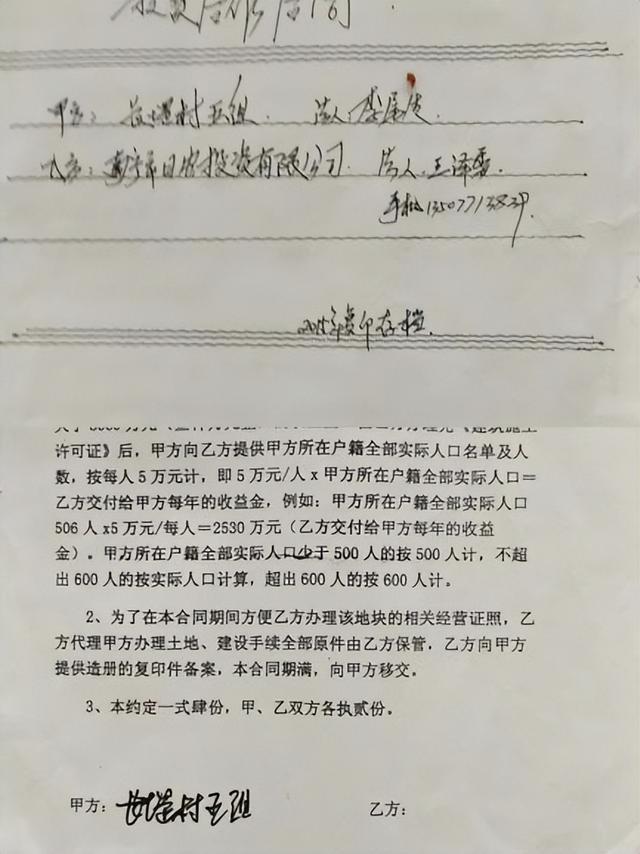 投资合作合同
甲方：长堽村五组. 法人.李
乙方：南宁市日 投资有限公司. 法人.王泽
手机1350771383
2015年复印存档.
许可证》后，甲方向乙方提供甲方所在户籍全部实际人口名单及人
数，按每人5万元计，即5万元/人x甲方所在户籍全部实际人口＝
乙方交付给甲方每年的收益金，例如：甲方所在户籍全部实际人口
506人x5万元/每人＝2530万元（乙方交付给甲方每年的收益
金）。甲方所在户籍全部实际人口少于500人的按500人计，不超
出600人的按实际人口计算，超出600人的按600人计。
2、为了在本合同期间方便乙方办理该地块的相关经营证照，乙
方代理甲方办理土地、建设手续全部原件由乙方保管，乙方向甲方
提供造册的复印件备案，本合同期满，向甲方移交。
3、本约定一式肆份，甲、乙双方各执贰份。
甲方：长堽村五组
乙方：